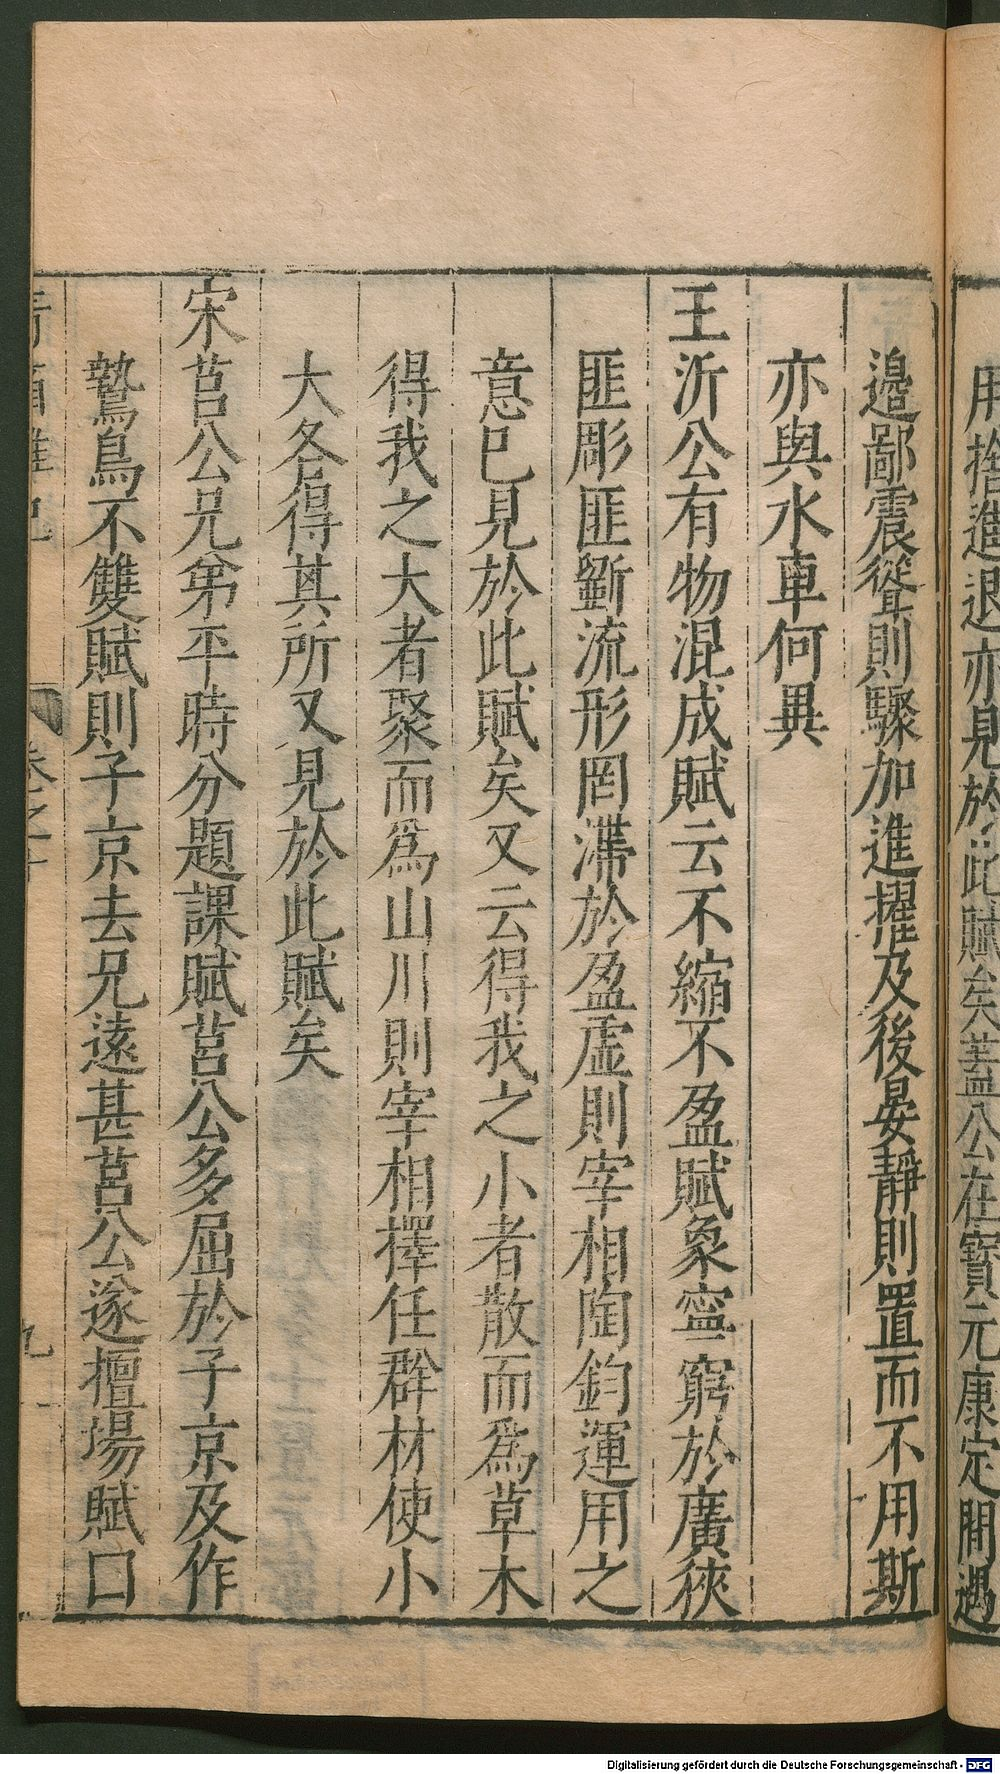 用捨進退亦見於此賦矣蓋公在寶元康定間遇
邊鄙震聳則驟加進擢及後晏靜則置而不用斯
亦與水車何異
王沂公有物混成賦云不縮不盈賦象寧窮於廣狹
匪彫匪斵流形罔滯於盈虛則宰相陶鈞運用之
意已見於此賦矣又云得我之小者散而爲草木
得我之大者聚而爲山川則宰相擇任群材使小
大各得其所又見於此賦矣
宋莒公兄弟平時分題課賦莒公多屈於子京及作
鷙鳥不雙賦則子京去兄遠甚莒公遂擅場賦口
青箱雜記 卷之十 九
Digitalisierung gefördert durch die Deutsche Forschungsgemeinschaft - DFG